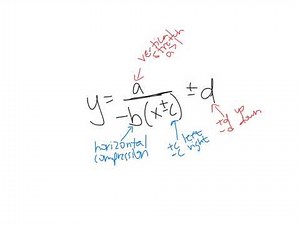 vertical
stretch
a
y = a / -b(x±c) ± d
horizontal
compression
+c left
-c right
+d up
-d down